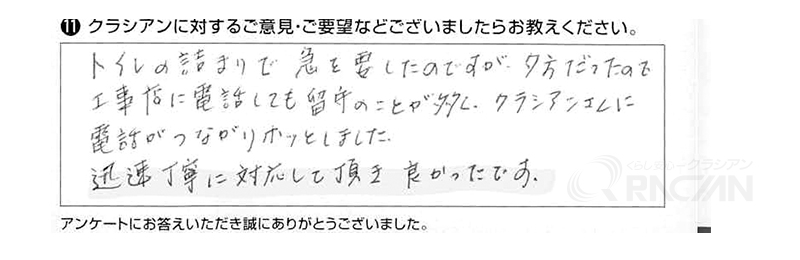 ⓫ クラシアンに対するご意見・ご要望などございましたらお教えください。
トイレの詰まりで 急を要したのですが、夕方だったので
工事店に電話しても留守のことが多く、クラシアンさんに
電話がつながりホッとしました。
迅速丁寧に対応して頂き 良かったです。
くらし安心クラシアン
QRACIAN
アンケートにお答えいただき誠にありがとうございました。